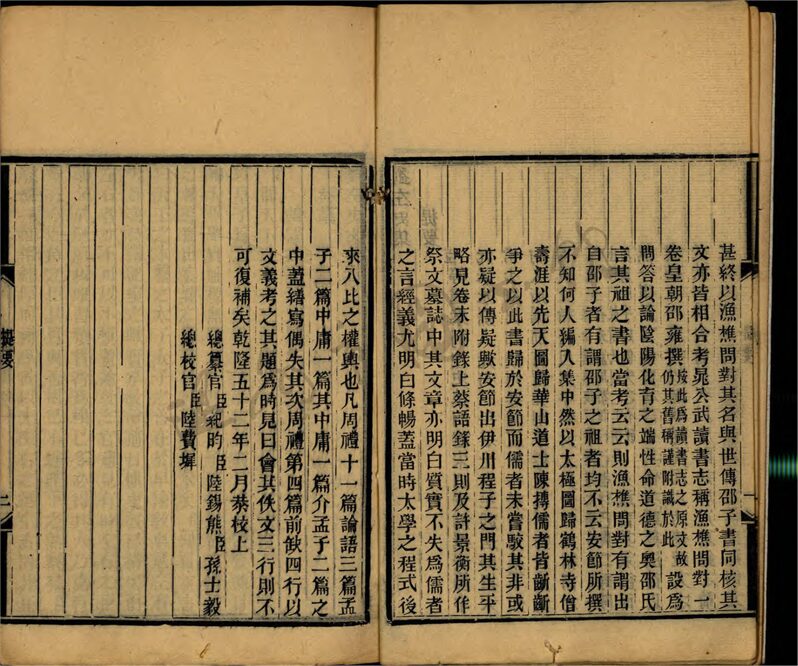 甚終以漁樵問對其名與世傳邵子書同核其
文亦皆相合考晁公武讀書志稱漁樵問對一
卷皇朝邵雍撰按此爲讀書志之原文故仍其舊稱謹附識於此設爲
問答以論陰陽化育之端性命道德之奧邵氏
言其祖之書也當考云云則漁樵問對有謂出
自邵子者有謂邵子之祖者均不云安節所撰
不知何人編入集中然以太極圖歸鶴林寺僧
壽涯以先天圖歸華山道士陳摶儒者皆齗齗
爭之以此書歸於安節而儒者未嘗駁其非或
亦疑以傳疑歟安節出伊川程子之門其生平
略見卷末附錄上蔡語錄三則及許景衡所作
祭文墓誌中其文章亦明白質實不失爲儒者
之言經義尤明白條暢蓋當時太學之程式後
來八比之權輿也凡周禮十一篇論語三篇孟
子二篇中庸一篇其中庸一篇介孟子二篇之
中蓋繕寫偶失其次周禮第四篇前缺四行以
文義考之其題爲時見曰會其佚文三行則不
可復補矣乾隆五十二年二月恭校上
總纂官臣紀昀臣陸錫熊臣孫士毅
總校官臣陸費墀
提要
二